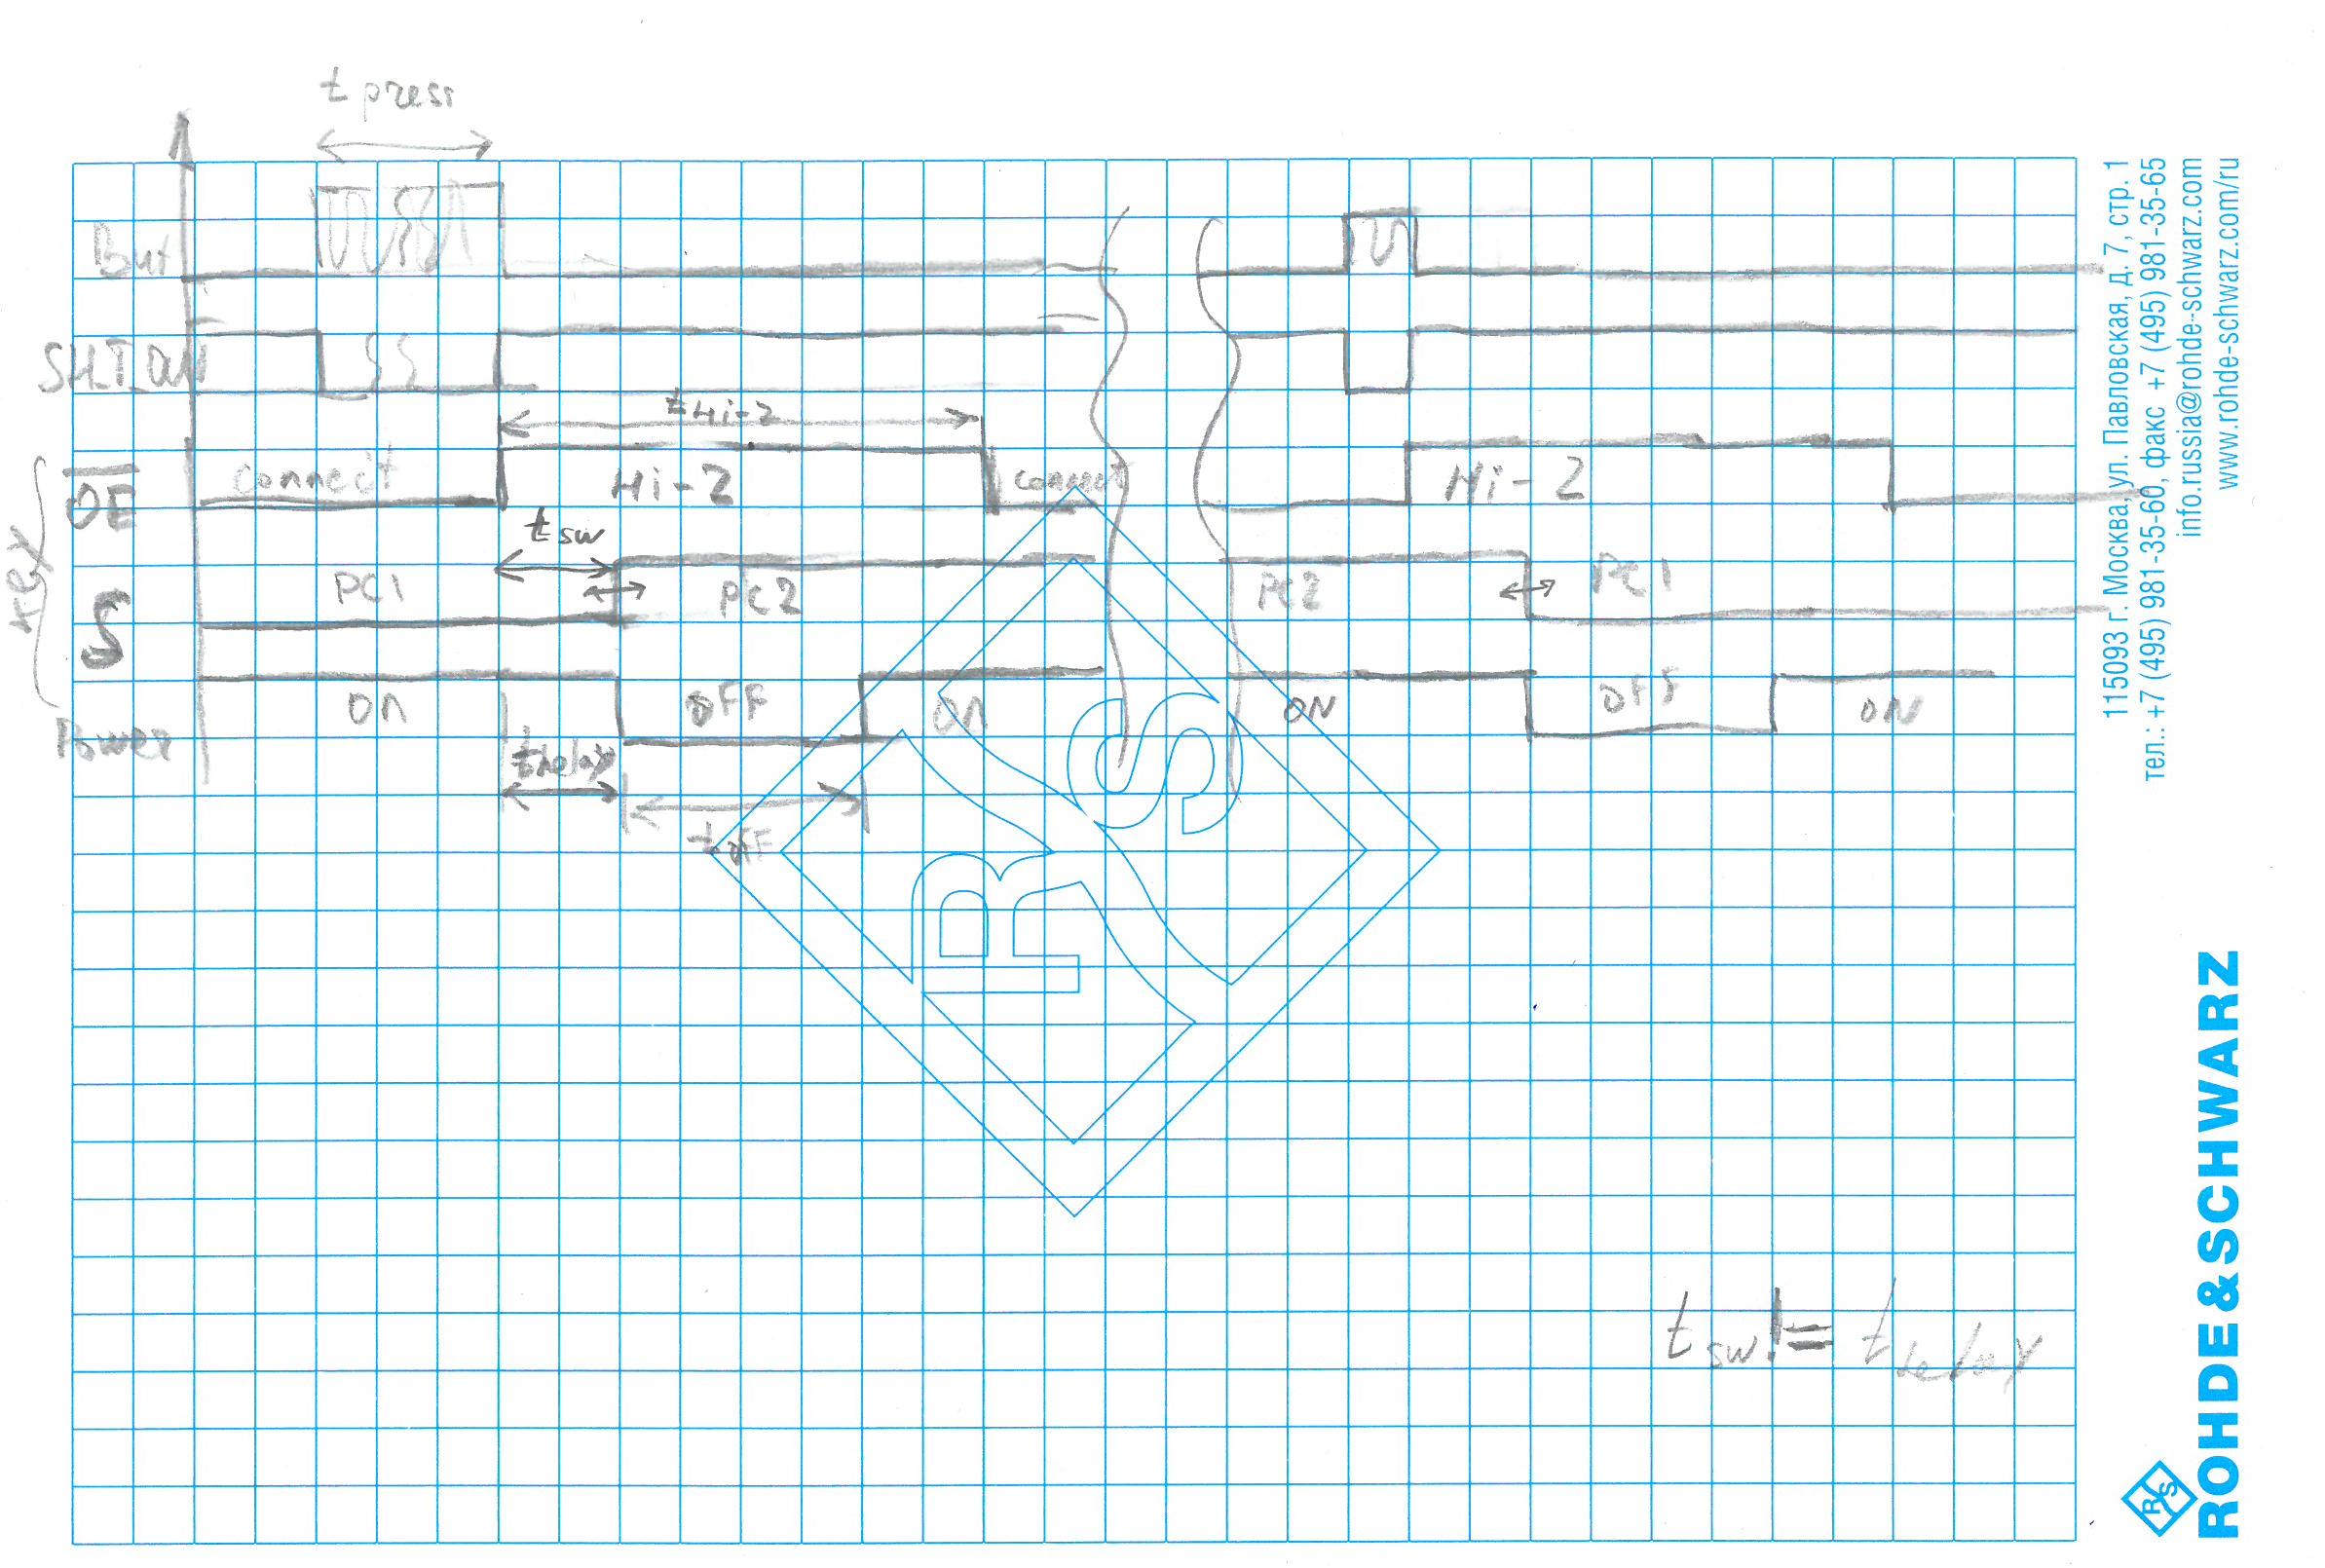 t press
But
SHT_DN
t Hi-Z
OE
connect
Hi-Z
connect
Hi-Z
t sw
S
PC1
PC2
PC2
PC1
Power
ON
OFF
ON
ON
OFF
ON
t delay
t off
t sw != t delay
R S
115093 г. Москва, ул. Павловская, д. 7, стр. 1
тел.: +7 (495) 981-35-60, факс +7 (495) 981-35-65
info.russia@rohde-schwarz.com
www.rohde-schwarz.com/ru
ROHDE & SCHWARZ